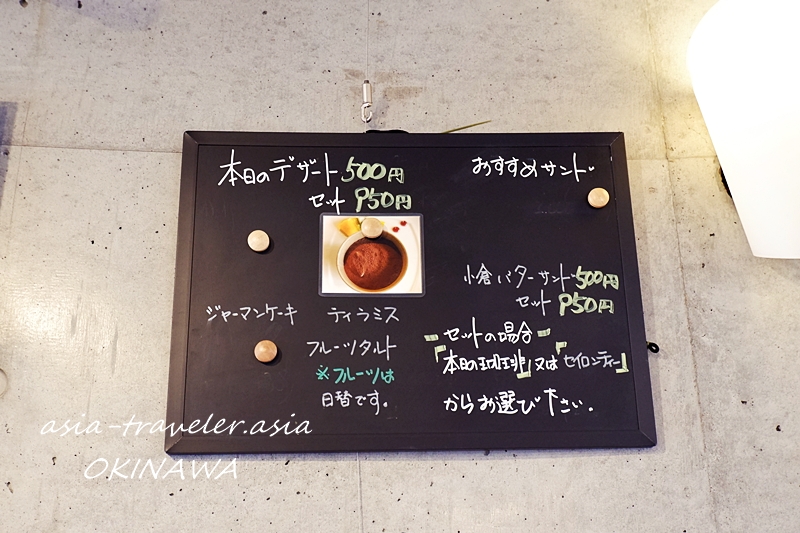 本日のデザート 500円
セット 950円
ジャーマンケーキ
ティラミス
フルーツタルト
※フルーツは
日替です。
おすすめサンド
小倉バターサンド 500円
セット 950円
セットの場合
「本日の珈琲」又は「セイロンティー」
からお選び下さい。
asia-traveler.asia
OKINAWA